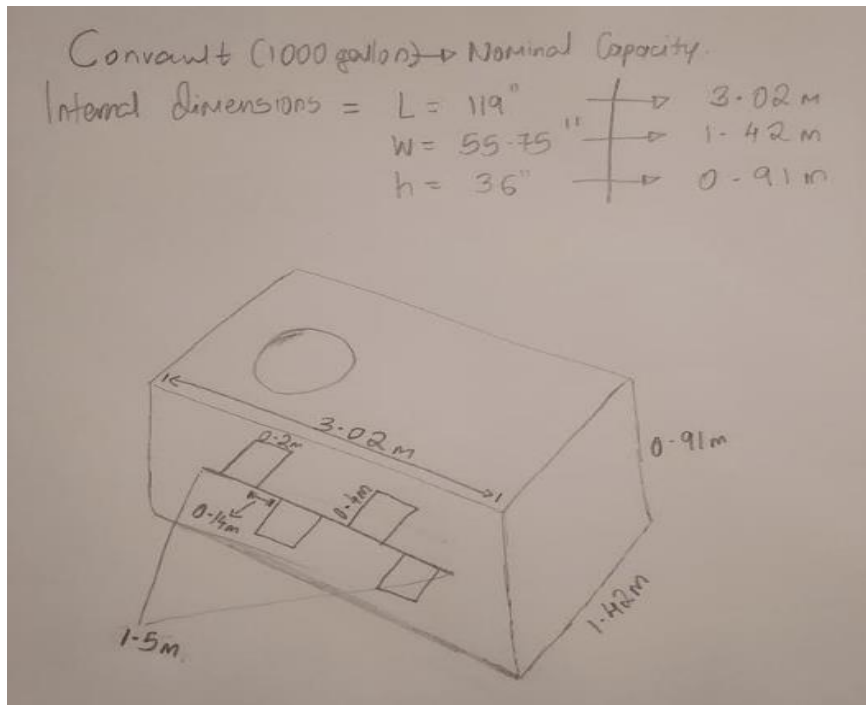 Convault (1000 gallon) → Nominal Capacity.
Internal dimensions = L = 119" → 3.02 m
W = 55.75" → 1.42 m
h = 36" → 0.91 m
3.02 m
0.91 m
0.2m
0.4m
0.14m
1.42m
1.5m.